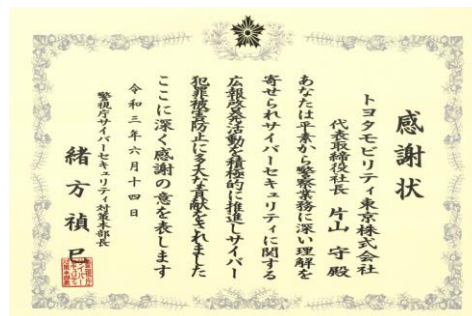 感謝状
トヨタモビリティ東京株式会社
代表取締役社長 片山 守 殿
あなたは平素から警察業務に深い理解を
寄せられサイバーセキュリティに関する
広報啓発活動を積極的に推進しサイバー
犯罪被害防止に多大な貢献をされました
ここに深く感謝の意を表します
令和三年六月十四日
警視庁サイバーセキュリティ対策本部長
緒方禎己